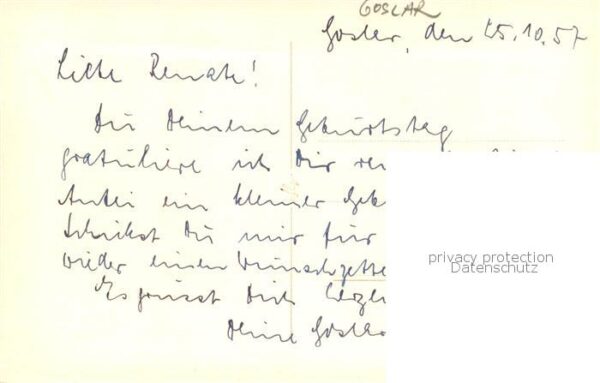 GOSLAR
Goslar, den 25.10.57
Liebe Renate!
Zu Deinem Geburtstag
gratuliere ich Dir
Anbei ein kleiner
Schickst Du mir für
wieder einen Wunschzette
Es grüsst Dich
Deine
privacy protection
Datenschutz